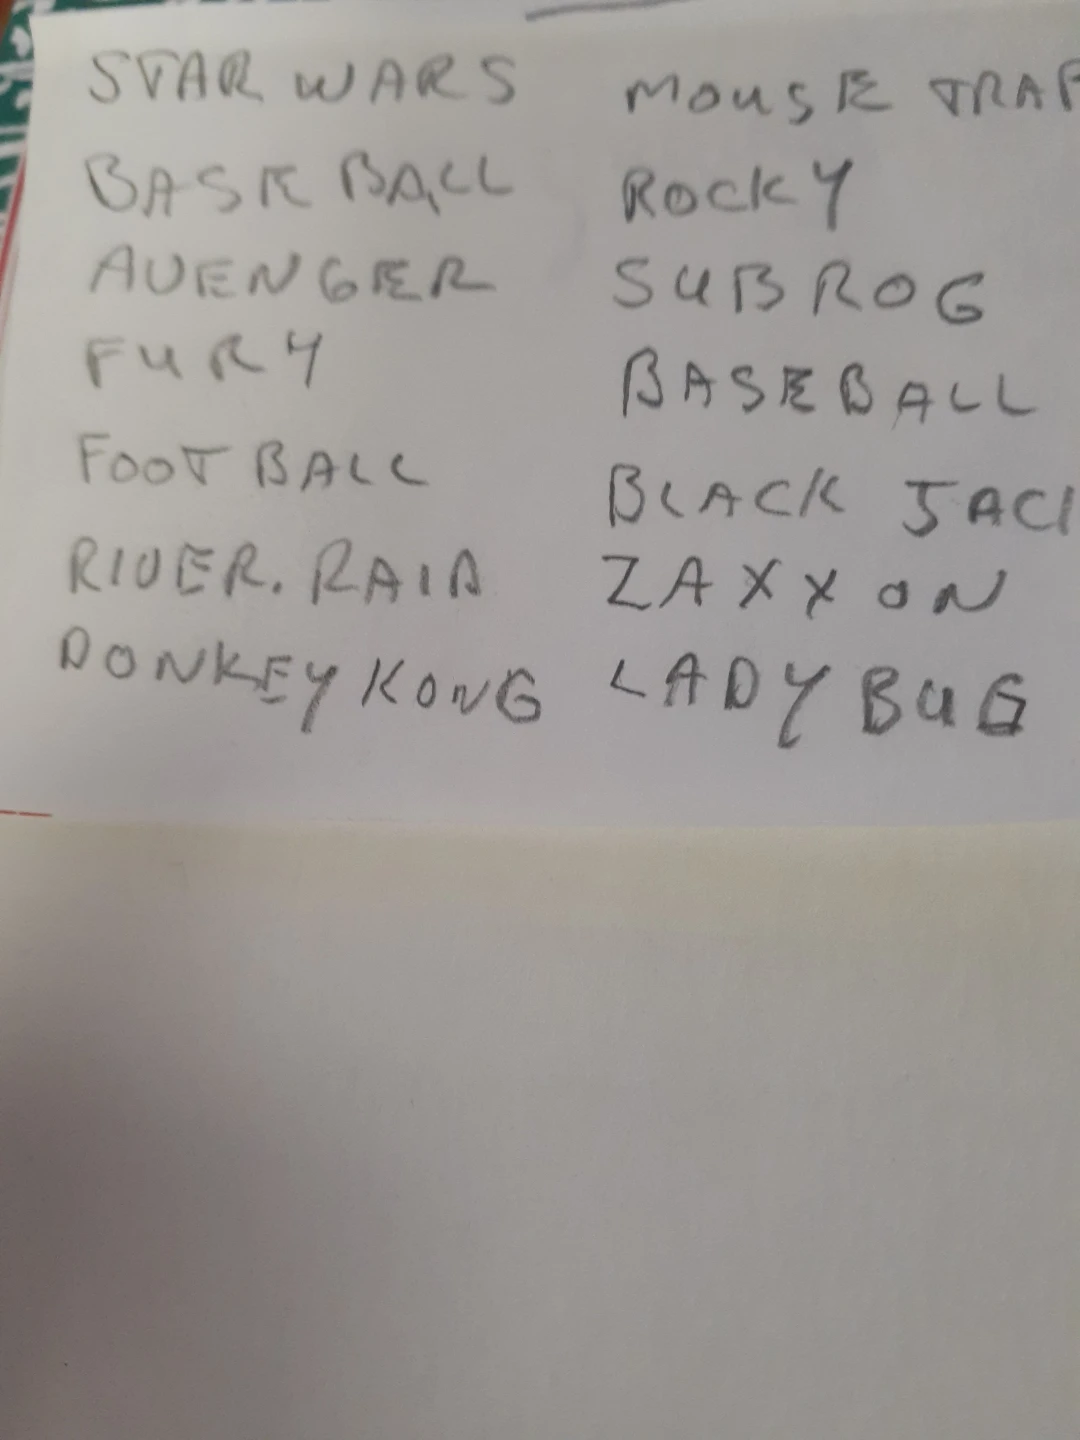 STAR WARS
BASE BALL
AVENGER
FURY
FOOT BALL
RIVER. RAID
DONKEY KONG
MOUSE TRAP
ROCKY
SUBROG
BASEBALL
BLACK JACK
ZAXXON
LADY BUG